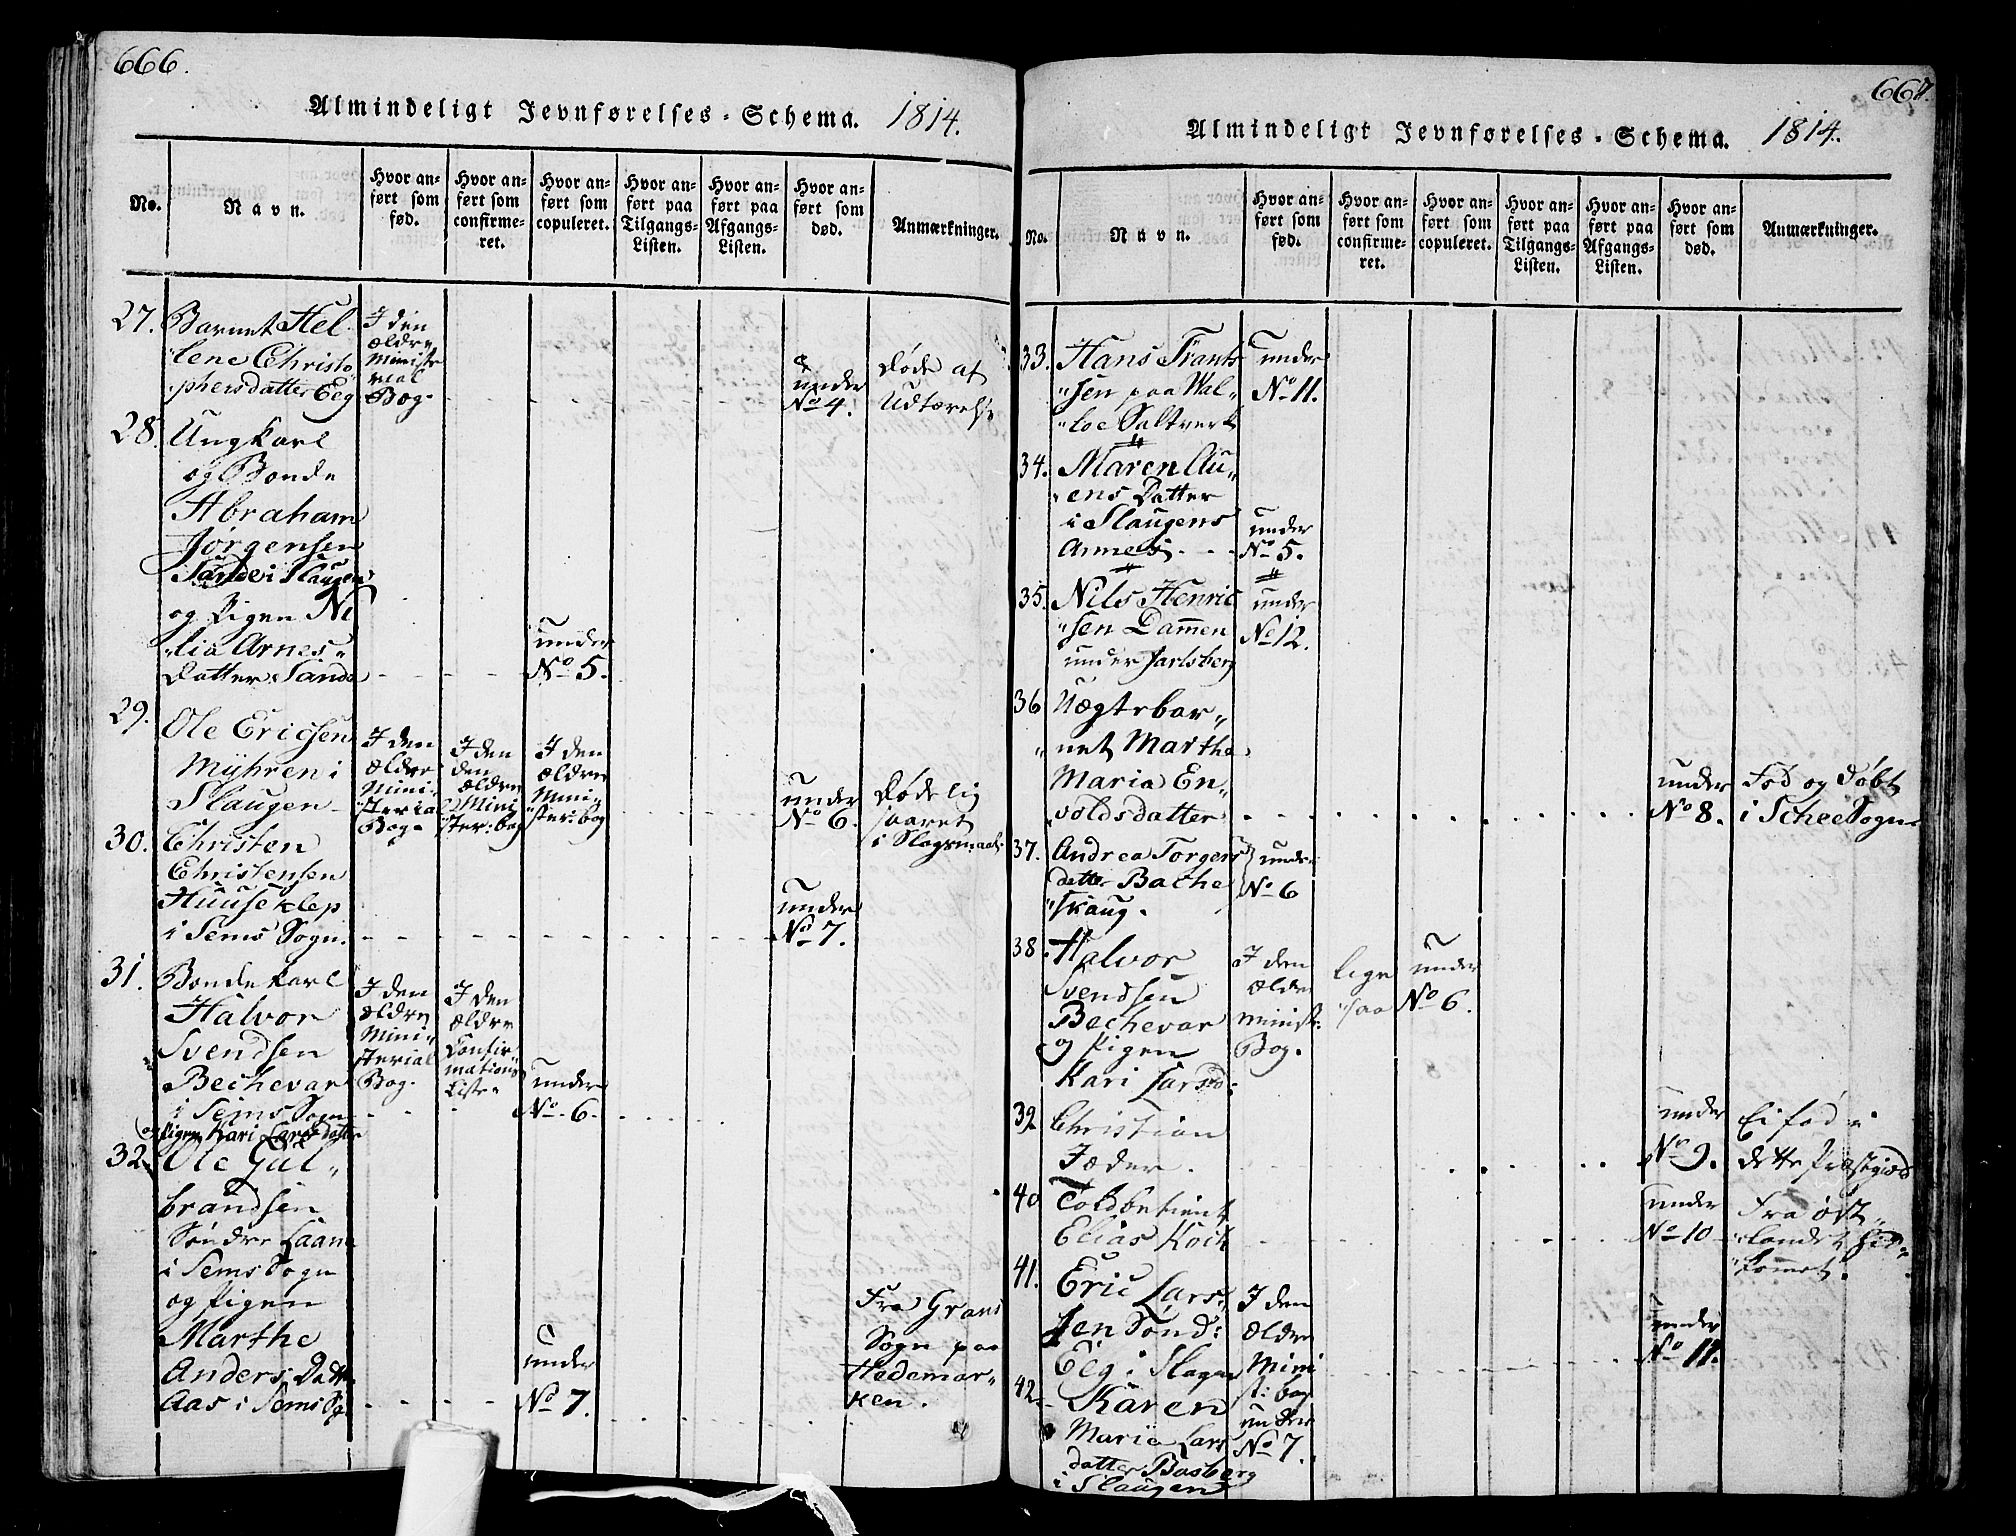 666.
Almindeligt Jevnførelses-Schema. 1814.
No.
Navn.
Hvor an-
ført som
fød.
Hvor an-
ført som
confirme-
ret.
Hvor an-
ført som
copuleret.
Hvor an-
ført paa
Tilgangs-
Listen.
Hvor an-
ført paa
Afgangs-
Listen.
Hvor an-
ført som
død.
Anmærkninger.
27. Barnet Hel-
lene Christo
phersdatter Eeg
I den
ældre
Ministe
rial
Bog.
under
No 4.
Døde af
Udtærelse
28. Ungkarl
og Bonde
Abraham
Jørgensen
Sande i Slaugen
og Pigen Ni
"lia Arnes"
Datter Sande
under
No 5.
29. Ole Ericsen
Myhren i
Slaugen
I den
ældre
Mini-
steria
Bog.
I den
den
ældre
Mini
ster: bog
I den
ældre
Mini-
ster: bog
under
No 6.
Døde lig
saaret
i Slagsmaal.
30. Christen
Christensen
Huuseklep
i Sems Sogn.
under
No 7.
31. Bondekarl
Halvor
Svendsen
Bechevar
i Sems Sogn
og Pigen Kari Larsdatter
I den
ældre
Mini-
sterial
Bog.
I den
ældre
Confir-
mations
Liste
under
No 6.
32. Ole Gul-
brandsen
Søndre Laane
i Sems Sogn
og Pigen
Marthe
Anders Datt
Aas i Sems Sg
under
No 7.
Fra Grans
Sogn paa
Hedemar-
ken.
667.
Almindeligt Jevnførelses-Schema. 1814.
No.
Navn.
Hvor an-
ført som
fød.
Hvor an-
ført som
confirme-
ret.
Hvor an-
ført som
copuleret.
Hvor an-
ført paa
Tilgangs-
Listen.
Hvor an-
ført paa
Afgangs-
Listen.
Hvor an-
ført som
død.
Anmærkninger.
33. Hans Frants
"sen paa Wal-
"loe Saltverk
under
No 11.
34. Maren Au-
"ens Datter
i Slaugens
Annex
under
No 5.
35. Nils Henric
"sen Dammen
under Jarlsberg
under
No 12.
36 Uægtebar-
"net Martha
Maria En-
voldsdatter
under
No 8.
Fød og Døbt
i Schee Sogn
37. Andrea Torgers
datter Bache
"skaug.
under
No 6
38. Halvor
Svendsen
Bechevar
og Pigen
Kari Larsd:
I den
ældre
Minist:
Bog.
lige
"saa
under
No 6.
39 Christian
Jæder.
under
No 9.
Ei fød i
dette Præstegield
40 Toldbetient
Elias Koch
under
No 10
Fra Øst-
landet hid-
"kommet.
41. Eric Lars-
sen Sønd:
Eeg i Slagen
I den
ældre
Mini
st: bog
under
No 11.
42. Karen
Maria Lars
datter Basberg
i Slaugen
under
No 7.